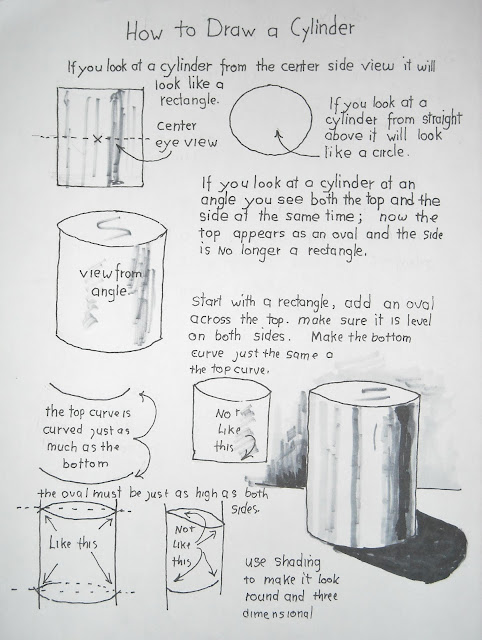 How to Draw a Cylinder
If you look at a cylinder from the center side view it will
look like a
rectangle.
center
eye view
If you look at a
cylinder from straight
above it will look
like a circle.
If you look at a cylinder at an
angle you see both the top and the
side at the same time; now the
top appears as an oval and the side
is no longer a rectangle.
view from
angle
Start with a rectangle, add an oval
across the top. make sure it is level
on both sides. Make the bottom
curve just the same a
the top curve.
the top curve is
curved just as
much as the
bottom
Not
Like
this
the oval must be just as high as both
sides.
Like this
Not
Like
this
use shading
to make it look
round and three
dimensional